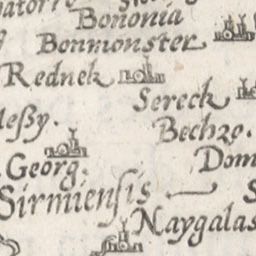 Bononia
Bonmonster
Rednek
Sereck
Bechze.
Georg.
Sirmiensis
Naygalas